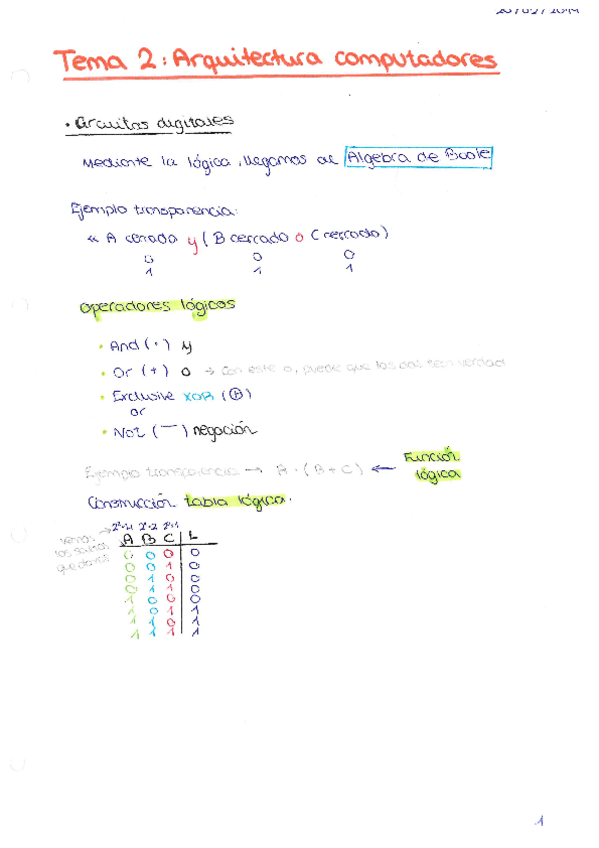 Tema 2: Arquitectura computadores
• Circuitos digitales
Mediante la lógica, llegamos al Algebra de Boole
Ejemplo transparencia:
« A cerrado y (B cerrado o C cerrado)
0 0 0
1 1 1
Operadores lógicos
• And (·) y
• Or (+) o → Con este o, puede que los dos sean verdad
• Exclusive XOR (⊕)
or
• Not (‾) negación
Ejemplo transparencia → A · (B + C) ← Función lógica
Construcción tabla lógica.
A B C L
0 0 0 0
0 0 1 0
0 1 0 0
0 1 1 0
1 0 0 0
1 0 1 1
1 1 0 1
1 1 1 1
1